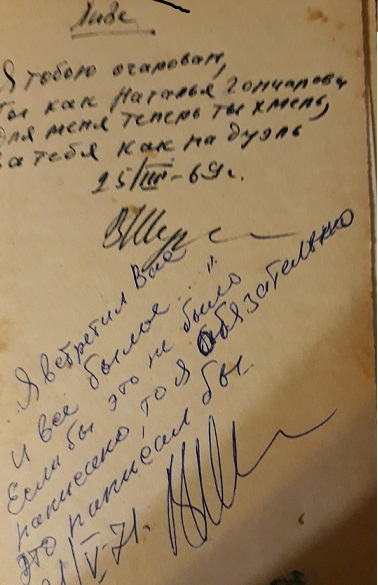 Лиде
Я тобою очарован,
Ты как Наталья Гончарова
Для меня теперь ты хмель,
За тебя как на дуэль
25/III-69г.
Я встретил Вас
И все былое..."
Если бы это не было
написано, то я обязательно
это написал бы.
/V-71.